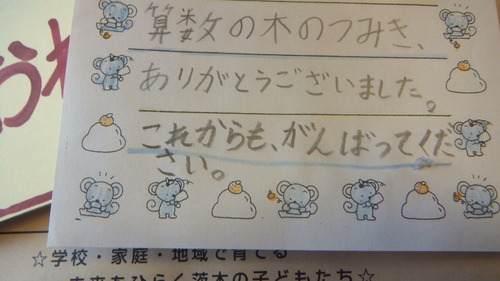 算数の木のつみき、
ありがとうございました。
これからも、がんばってくだ
さい。
☆学校・家庭・地域で育てる
未来をひらく茨木の子どもたち☆